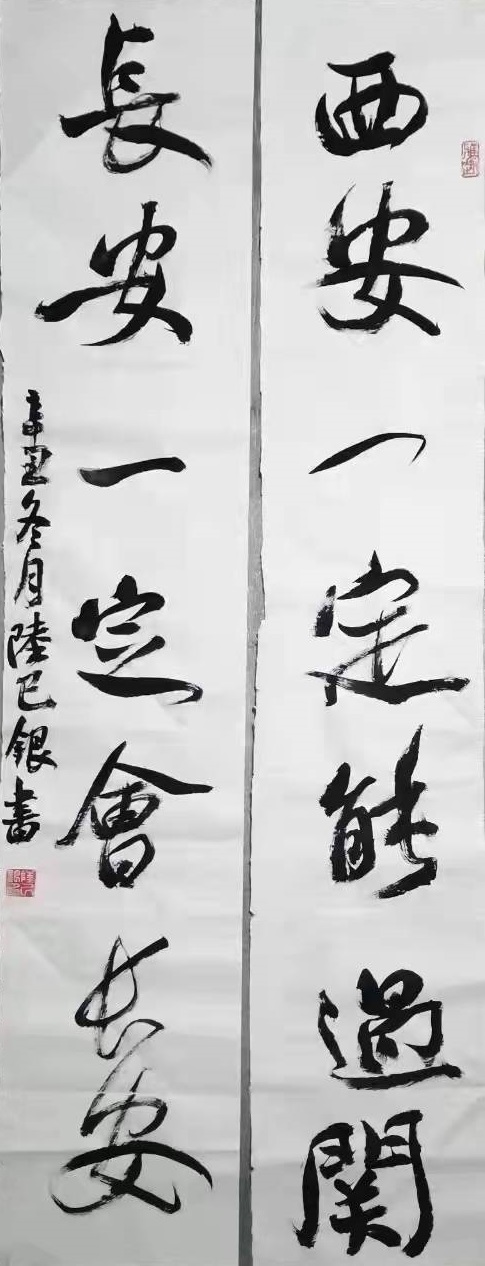 西安一定能過関
長安一定會长安
辛丑冬月陸已銀書